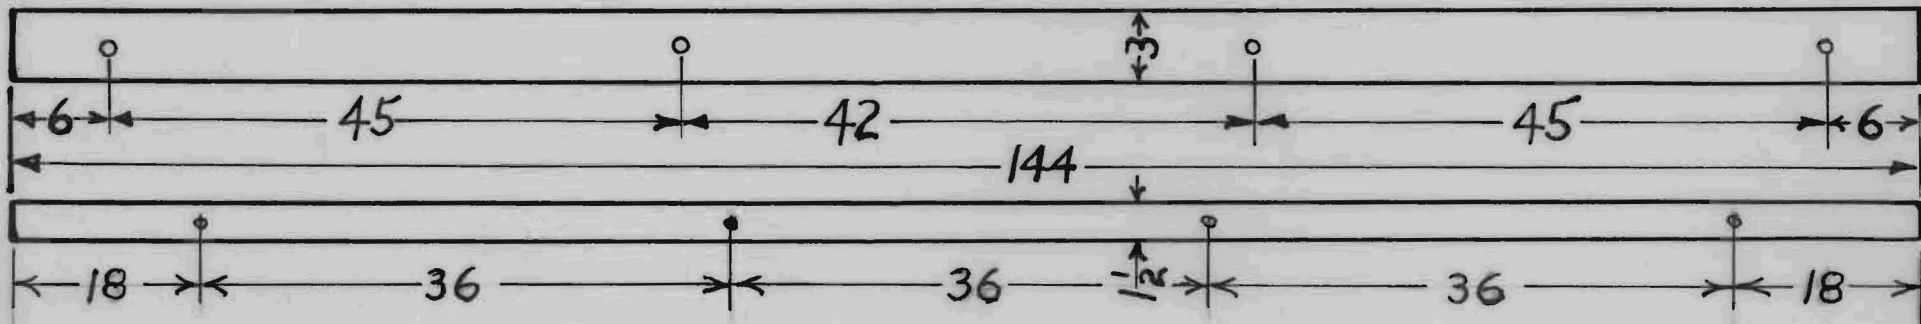 3
6 45 42 45 6
144
18 36 36 1/2 36 18